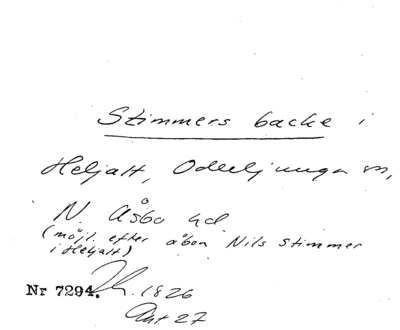 Stimmers backe i
Heljalt, Odeeljunga sn,
N. Åsbo hd
(möjl. efter åbon Nils Stimmer
i Heljalt)
Nr 7294. 1826
Akt 27